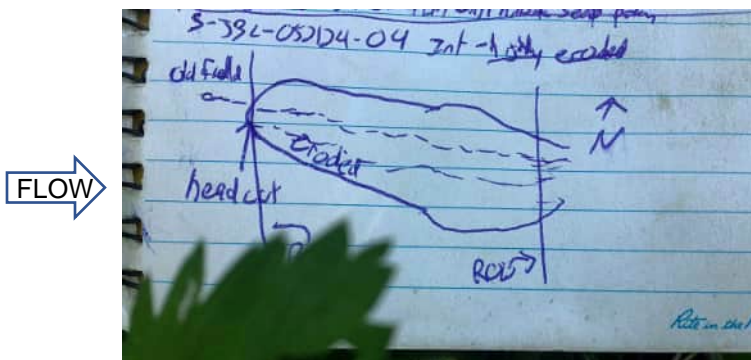 S-JBL-052124-04 Int-highly eroded
old field
N
eroded
FLOW
head cut
ROW
Rite in the